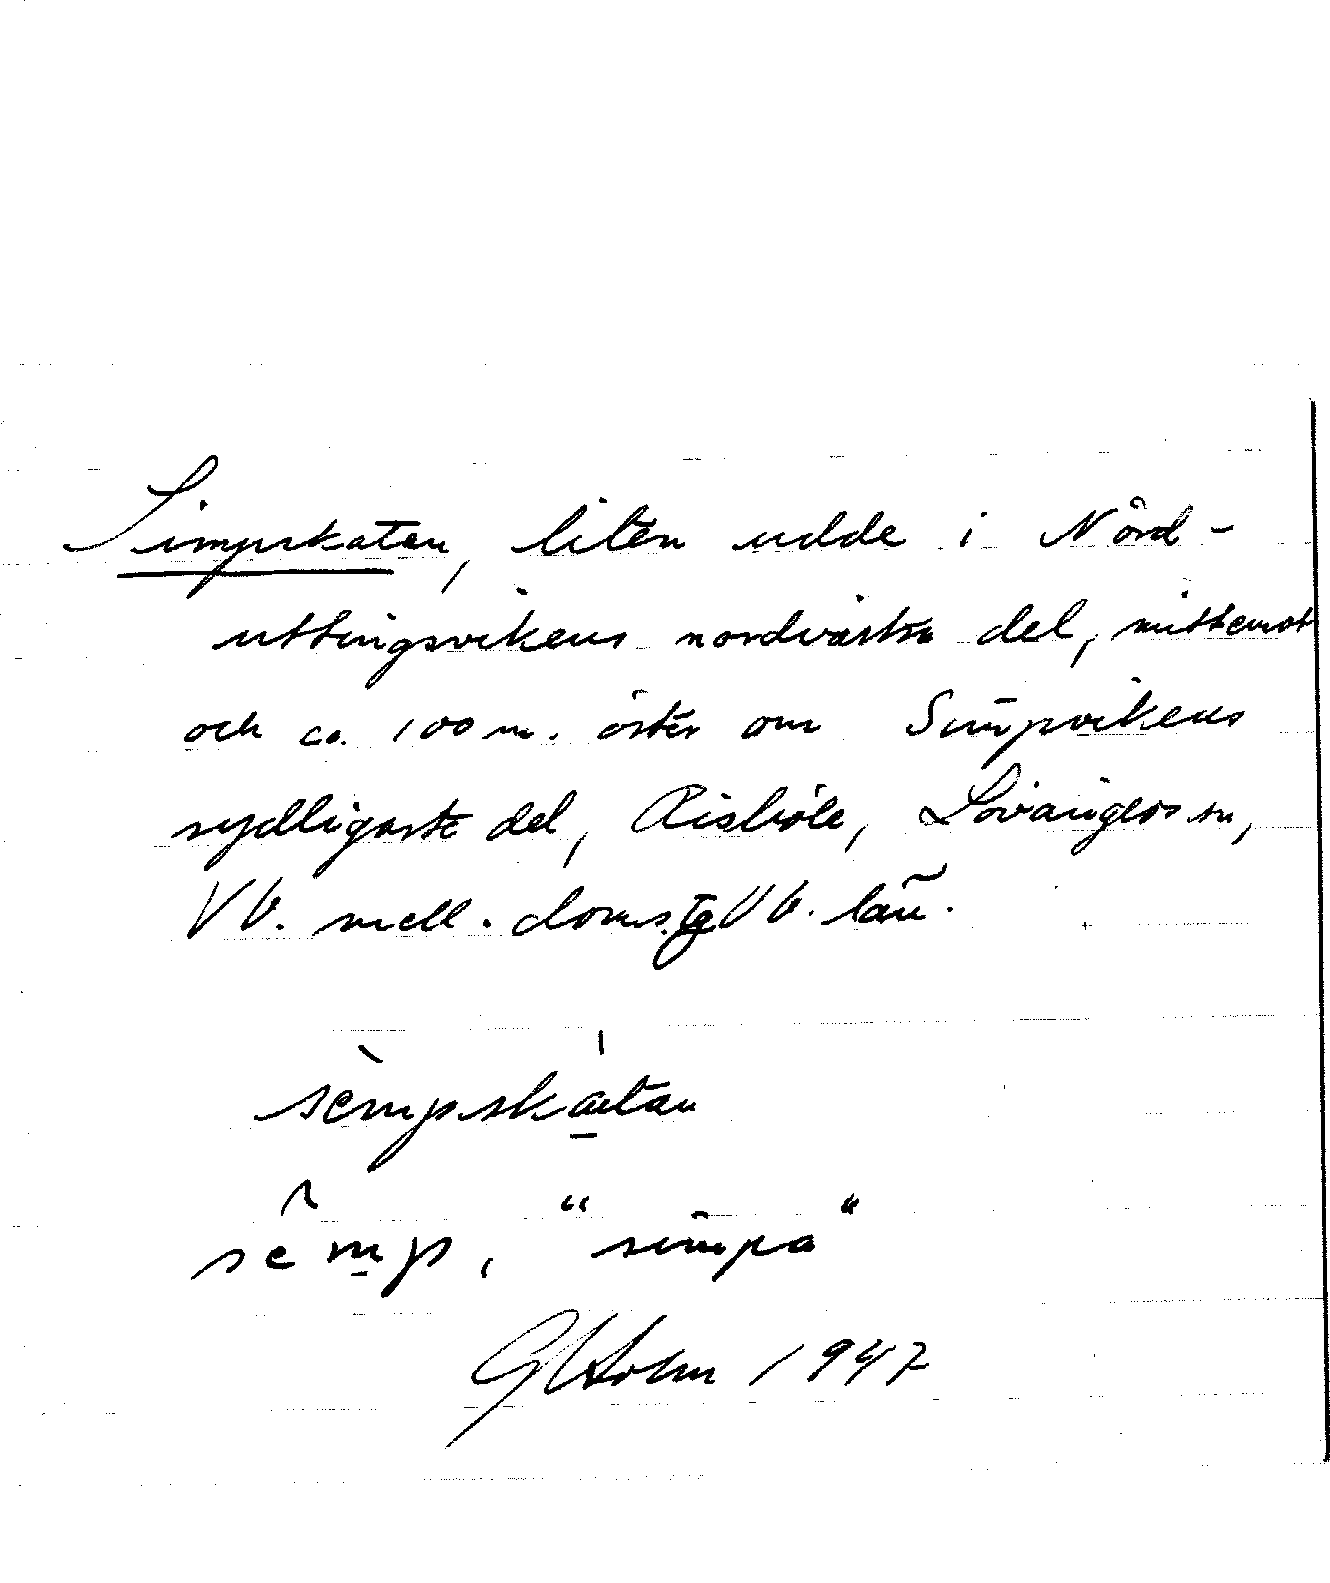 Simpskaten, liten udde i Nörd-
uttingsvikens nordvästra del, mittemot
och ca. 100 m. öster om Simpvikens
sydligaste del, Risböle, Lövångers sn,
Vb. mell. doms. tg Vb. län.
sèmpskatan
sêmp, "simpa"
G Holm 1947